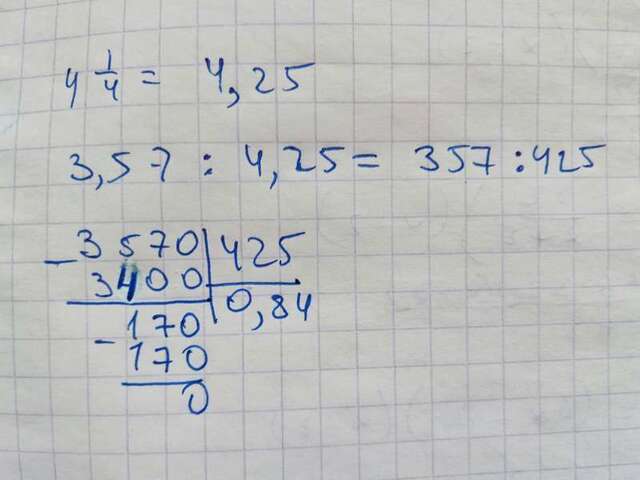 4 1/4 = 4,25
3,57 : 4,25 = 357 : 425
- 3570 | 425
3400 | 0,84
- 170
170
0